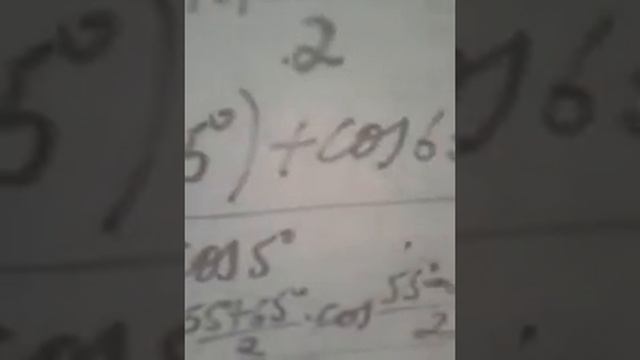 .2
5°) + cos 6
cos 5°
55+65°/2 . cos 55°-/2